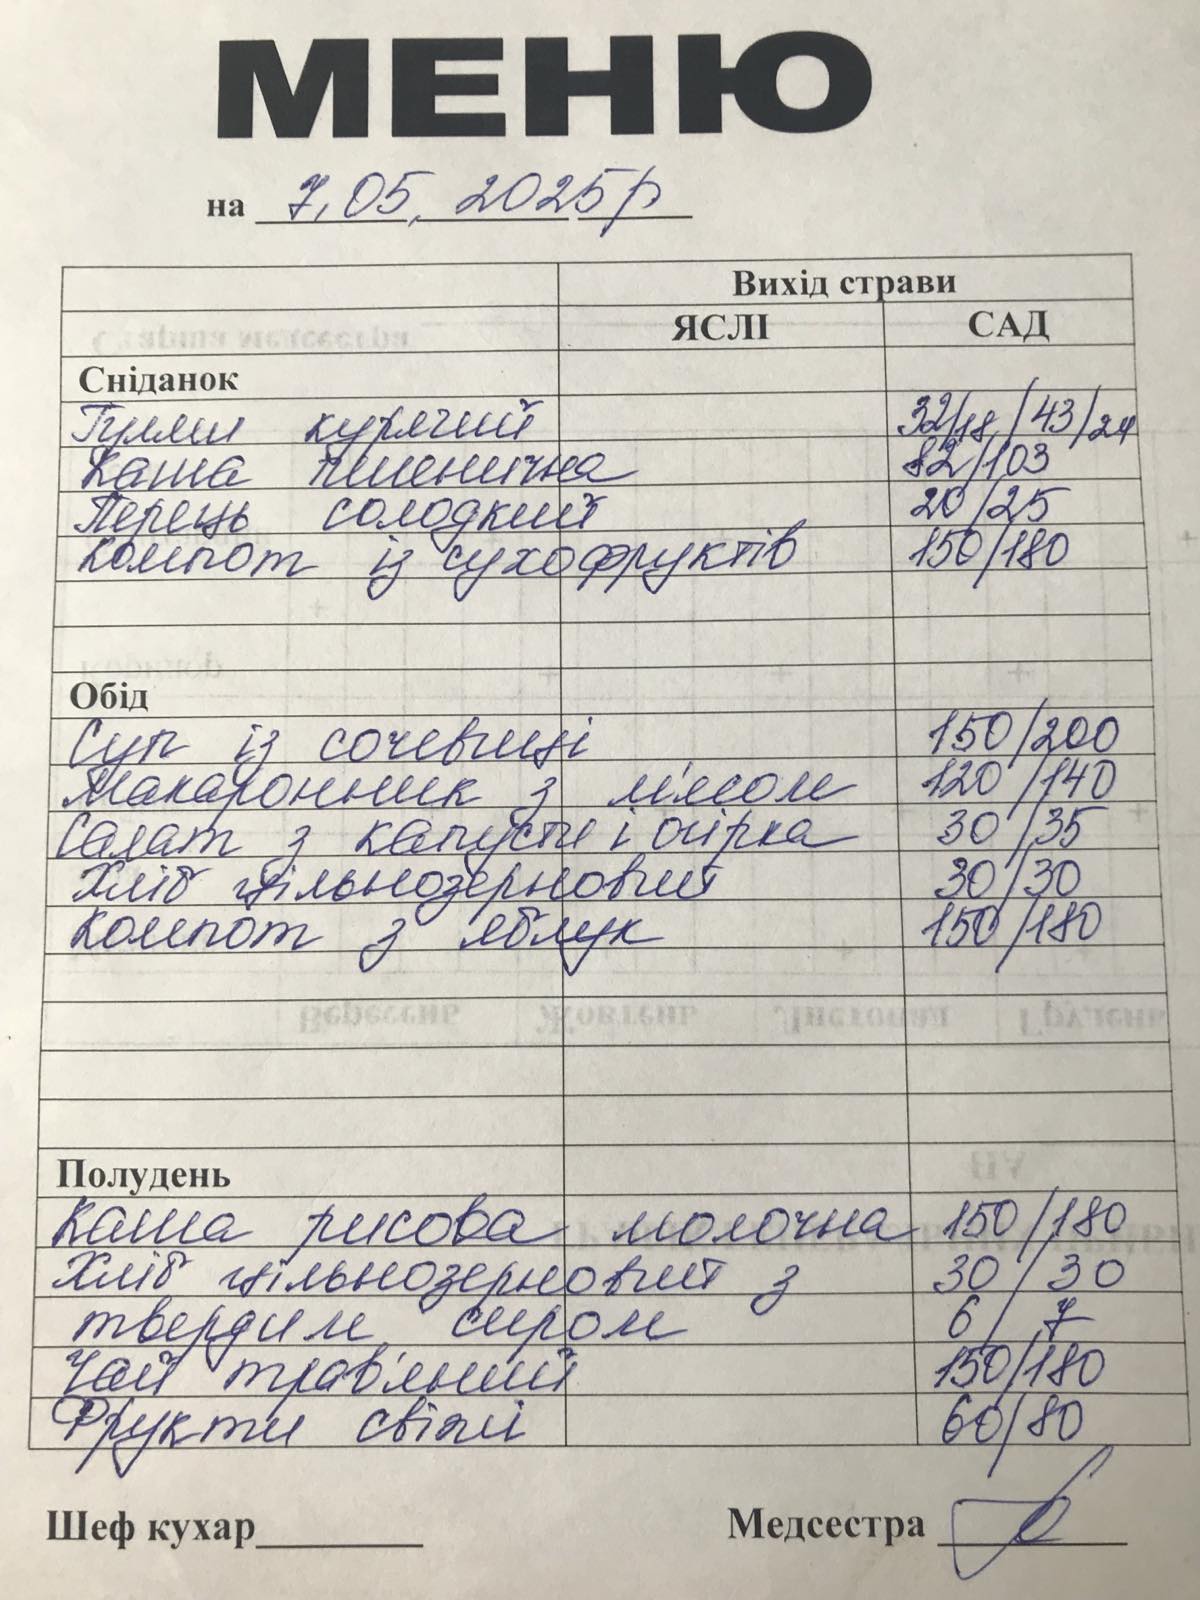 МЕНЮ
на 7,05, 2025р
Вихід страви
ЯСЛІ САД
Сніданок
Гуляш курячий 32/18 /43/24
Каша пшенична 82/103
Перець солодкий 20/25
Компот із сухофруктів 150/180
Обід
Суп із сочевиці 150/200
Макаронник з м'ясом 120/140
Салат з капусти і огірка 30/35
Хліб цільнозерновий 30/30
Компот з яблук 150/180
Полудень
Каша рисова молочна 150/180
Хліб цільнозерновий з 30/30
твердим сиром 6/7
Чай трав'яний 150/180
Фрукти свіжі 60/80
Шеф кухар Медсестра